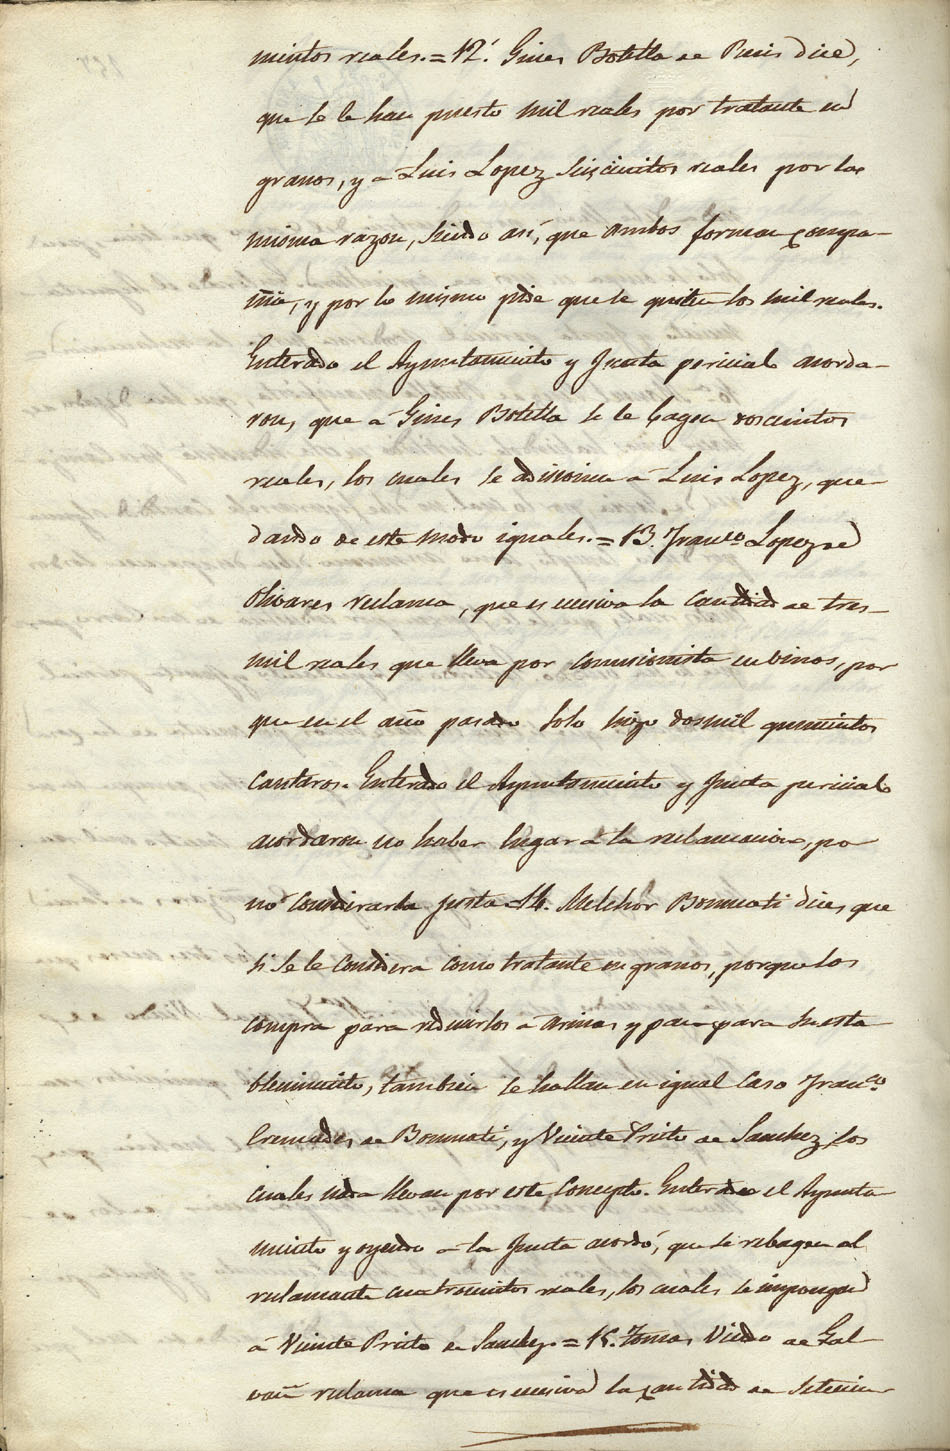 mientos reales.=12.' Gines Botella de Paris dice,
que se le han puesto mil reales por tratante en
granos, y á Luis Lopez seiscientos reales por la
misma razon, siendo así, que ambos forman compa-
ñia, y por lo mismo pide que se quiten los mil reales.
Enterado el Ayuntamiento y Junta pericial acorda-
ron, que á Gines Botella se le bagen doscientos
reales, los cuales se adicionen á Luis Lopez, que-
dando de este modo iguales.=13. Franco. Lopez de
Olivares reclama, que es escesiva la cantidad de tres-
mil reales que lleva por comisionista en vinos, por
que en el año pasado solo hizo dosmil quinientos
cantaros. Enterado el Ayuntamiento y Junta pericial
acordaron no haber lugar á la reclamacion, por
no considerarla justa. 14. Melchor Bonmati dice, que
si se le considera como tratante en granos, porque los
compra para reducirlos á arinas y pan para su esta
blecimiento, tambien se hallan en igual caso Franco.
Cremades de Bonmati, y Vicente Prieto de Sanchez, los
cuales nada llevan por este concepto. Enterado el Ayunta
miento y oyendo á la Junta acordó, que se rebagen al
reclamante cuatrocientos reales, los cuales se impongan
á Vicente Prieto de Sanchez.=15. Tomas Viedo de Gal
vañ reclama que es escesiva la cantidad de setecien-